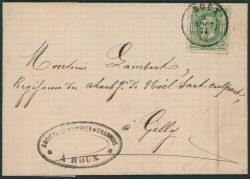 ROUX
Monsieur Lambert,
Régisseur du charb. de Noël-Sart-Culpart,
à
Gilly
SOCIÉTÉ DE
A ROUX